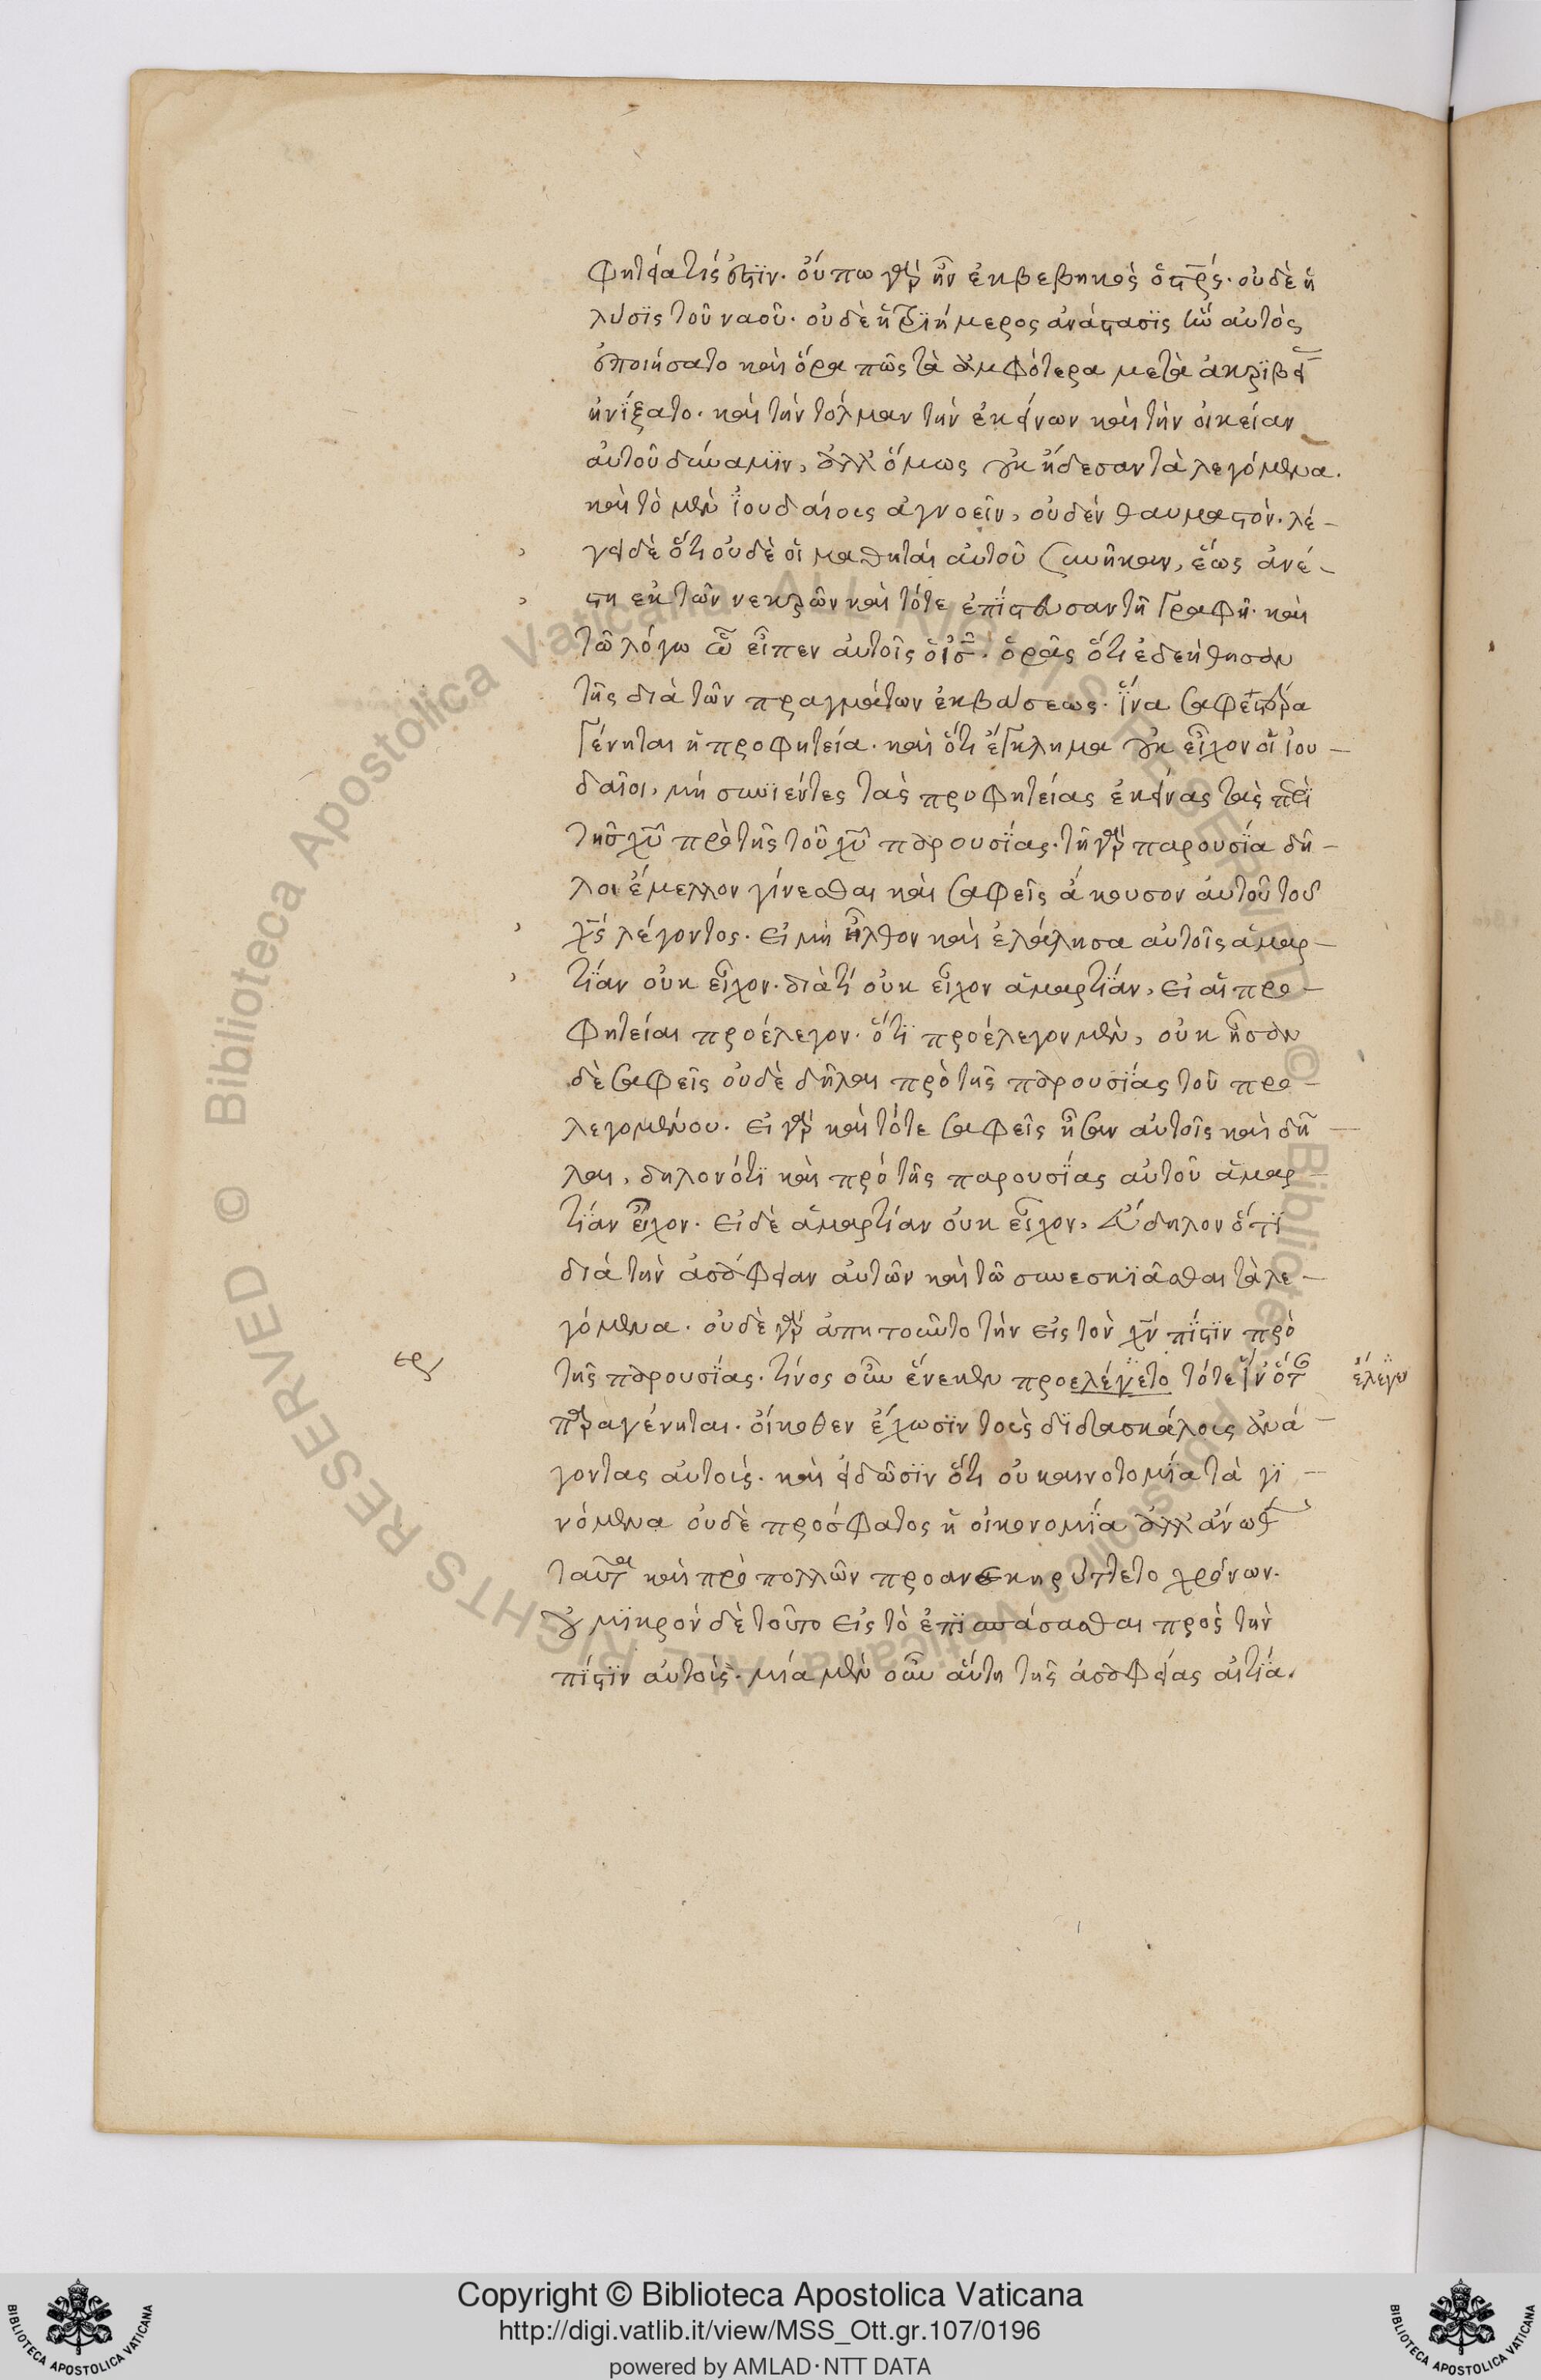 φητεία τίς ἐστιν. οὔπω γὰρ ἦν ἐκβεβηκὸς ὁ στρός. οὐδὲ ἡ
λύσις τοῦ ναοῦ. οὐδὲ ἡ τριήμερος ἀνάστασις ἣν αὐτὸς
ἐποιήσατο καὶ ὅρα πῶς τὰ ἀμφότερα μετὰ ἀκριβείας
ἠνίξατο. καὶ τὴν τόλμαν τὴν ἐκείνων καὶ τὴν οἰκείαν
αὐτοῦ δύναμιν, ἀλλ' ὅμως οὐκ ᾔδεσαν τὰ λεγόμενα.
καὶ τὸ μὲν ἰουδαίοις ἀγνοεῖν, οὐδὲν θαυμαστόν. λέ-
γει δὲ ὅτι οὐδὲ οἱ μαθηταὶ αὐτοῦ συνῆκαν, ἕως ἀνέ-
στη ἐκ τῶν νεκρῶν καὶ τότε ἐπίστευσαν τῆ γραφῆ. καὶ
τῶ λόγω ὧ εἶπεν αὐτοῖς ὁ ἰς. ὁρᾶς ὅτι ἐδεήθησαν
τῆς διὰ τῶν πραγμάτων ἐκβάσεως. ἵνα σαφεστέρα
γένηται ἡ προφητεία. καὶ ὅτι ἔγκλημα οὐκ εἶχον οἱ ἰου-
δαῖοι, μὴ συνιέντες τὰς προφητείας ἐκείνας τὰς περὶ
τῆς χῦ πρὸ τῆς τοῦ χῦ παρουσίας. τῆ γὰρ παρουσία δῆ-
λοι ἔμελλον γίνεσθαι καὶ σαφεῖς ἄκουσον αὐτοῦ τοῦ
χς λέγοντος. εἰ μὴ ἦλθον καὶ ἐλάλησα αὐτοῖς ἁμαρ-
τίαν οὐκ εἶχον. διὰ τί οὐκ εἶχον ἁμαρτίαν, εἰ αἱ προ-
φητεῖαι προέλεγον. ὅτι προέλεγον μὲν, οὐκ ἦσαν
δὲ σαφεῖς οὐδὲ δῆλαι πρὸ τῆς παρουσίας τοῦ προ-
λεγομένου. εἰ γὰρ καὶ τότε σαφεῖς ἦσαν αὐτοῖς καὶ δῆ-
λαι, δηλονότι καὶ πρὸ τῆς παρουσίας αὐτοῦ ἁμαρ
τίαν εἶχον. εἰ δὲ ἁμαρτίαν οὐκ εἶχον, εὔδηλον ὅτι
διὰ τὴν ἀσάφειαν αὐτῶν καὶ τῶ συνεσκιᾶσθαι τὰ λε-
γόμενα. οὐδὲ γὰρ ἀπητοῦντο τὴν εἰς τὸν χν πίστιν πρὸ
τῆς παρουσίας. τίνος οὖν ἕνεκεν προελέγετο τότε ἵν' ὅταν ἐλέγον
παραγένηται. οἴκοθεν ἔχωσιν τοὺς διδασκάλους ἀνά-
γοντας αὐτούς. καὶ εἰδῶσιν ὅτι οὐ καινοτομία τὰ γι-
νόμενα οὐδὲ πρόσφατος ἡ οἰκονομία ἀλλ' ἄνωθεν
ταῦτα καὶ πρὸ πολλῶν προανεκηρύττετο χρόνων.
οὐ μικρὸν δὲ τοῦτο εἰς τὸ ἐπισπάσασθαι πρὸς τὴν
πίστιν αὐτούς. μία μὲν οὖν αὕτη τῆς ἀσαφείας αἰτία.
Copyright © Biblioteca Apostolica Vaticana
http://digi.vatlib.it/view/MSS_Ott.gr.107/0196
powered by AMLAD·NTT DATA
BIBLIOTECA APOSTOLICA VATICANA
BIBLIOTECA APOSTOLICA VATICANA
© Biblioteca Apostolica Vaticana ALL RIGHTS RESERVED
© Biblioteca Apostolica Vaticana ALL RIGHTS RESERVED